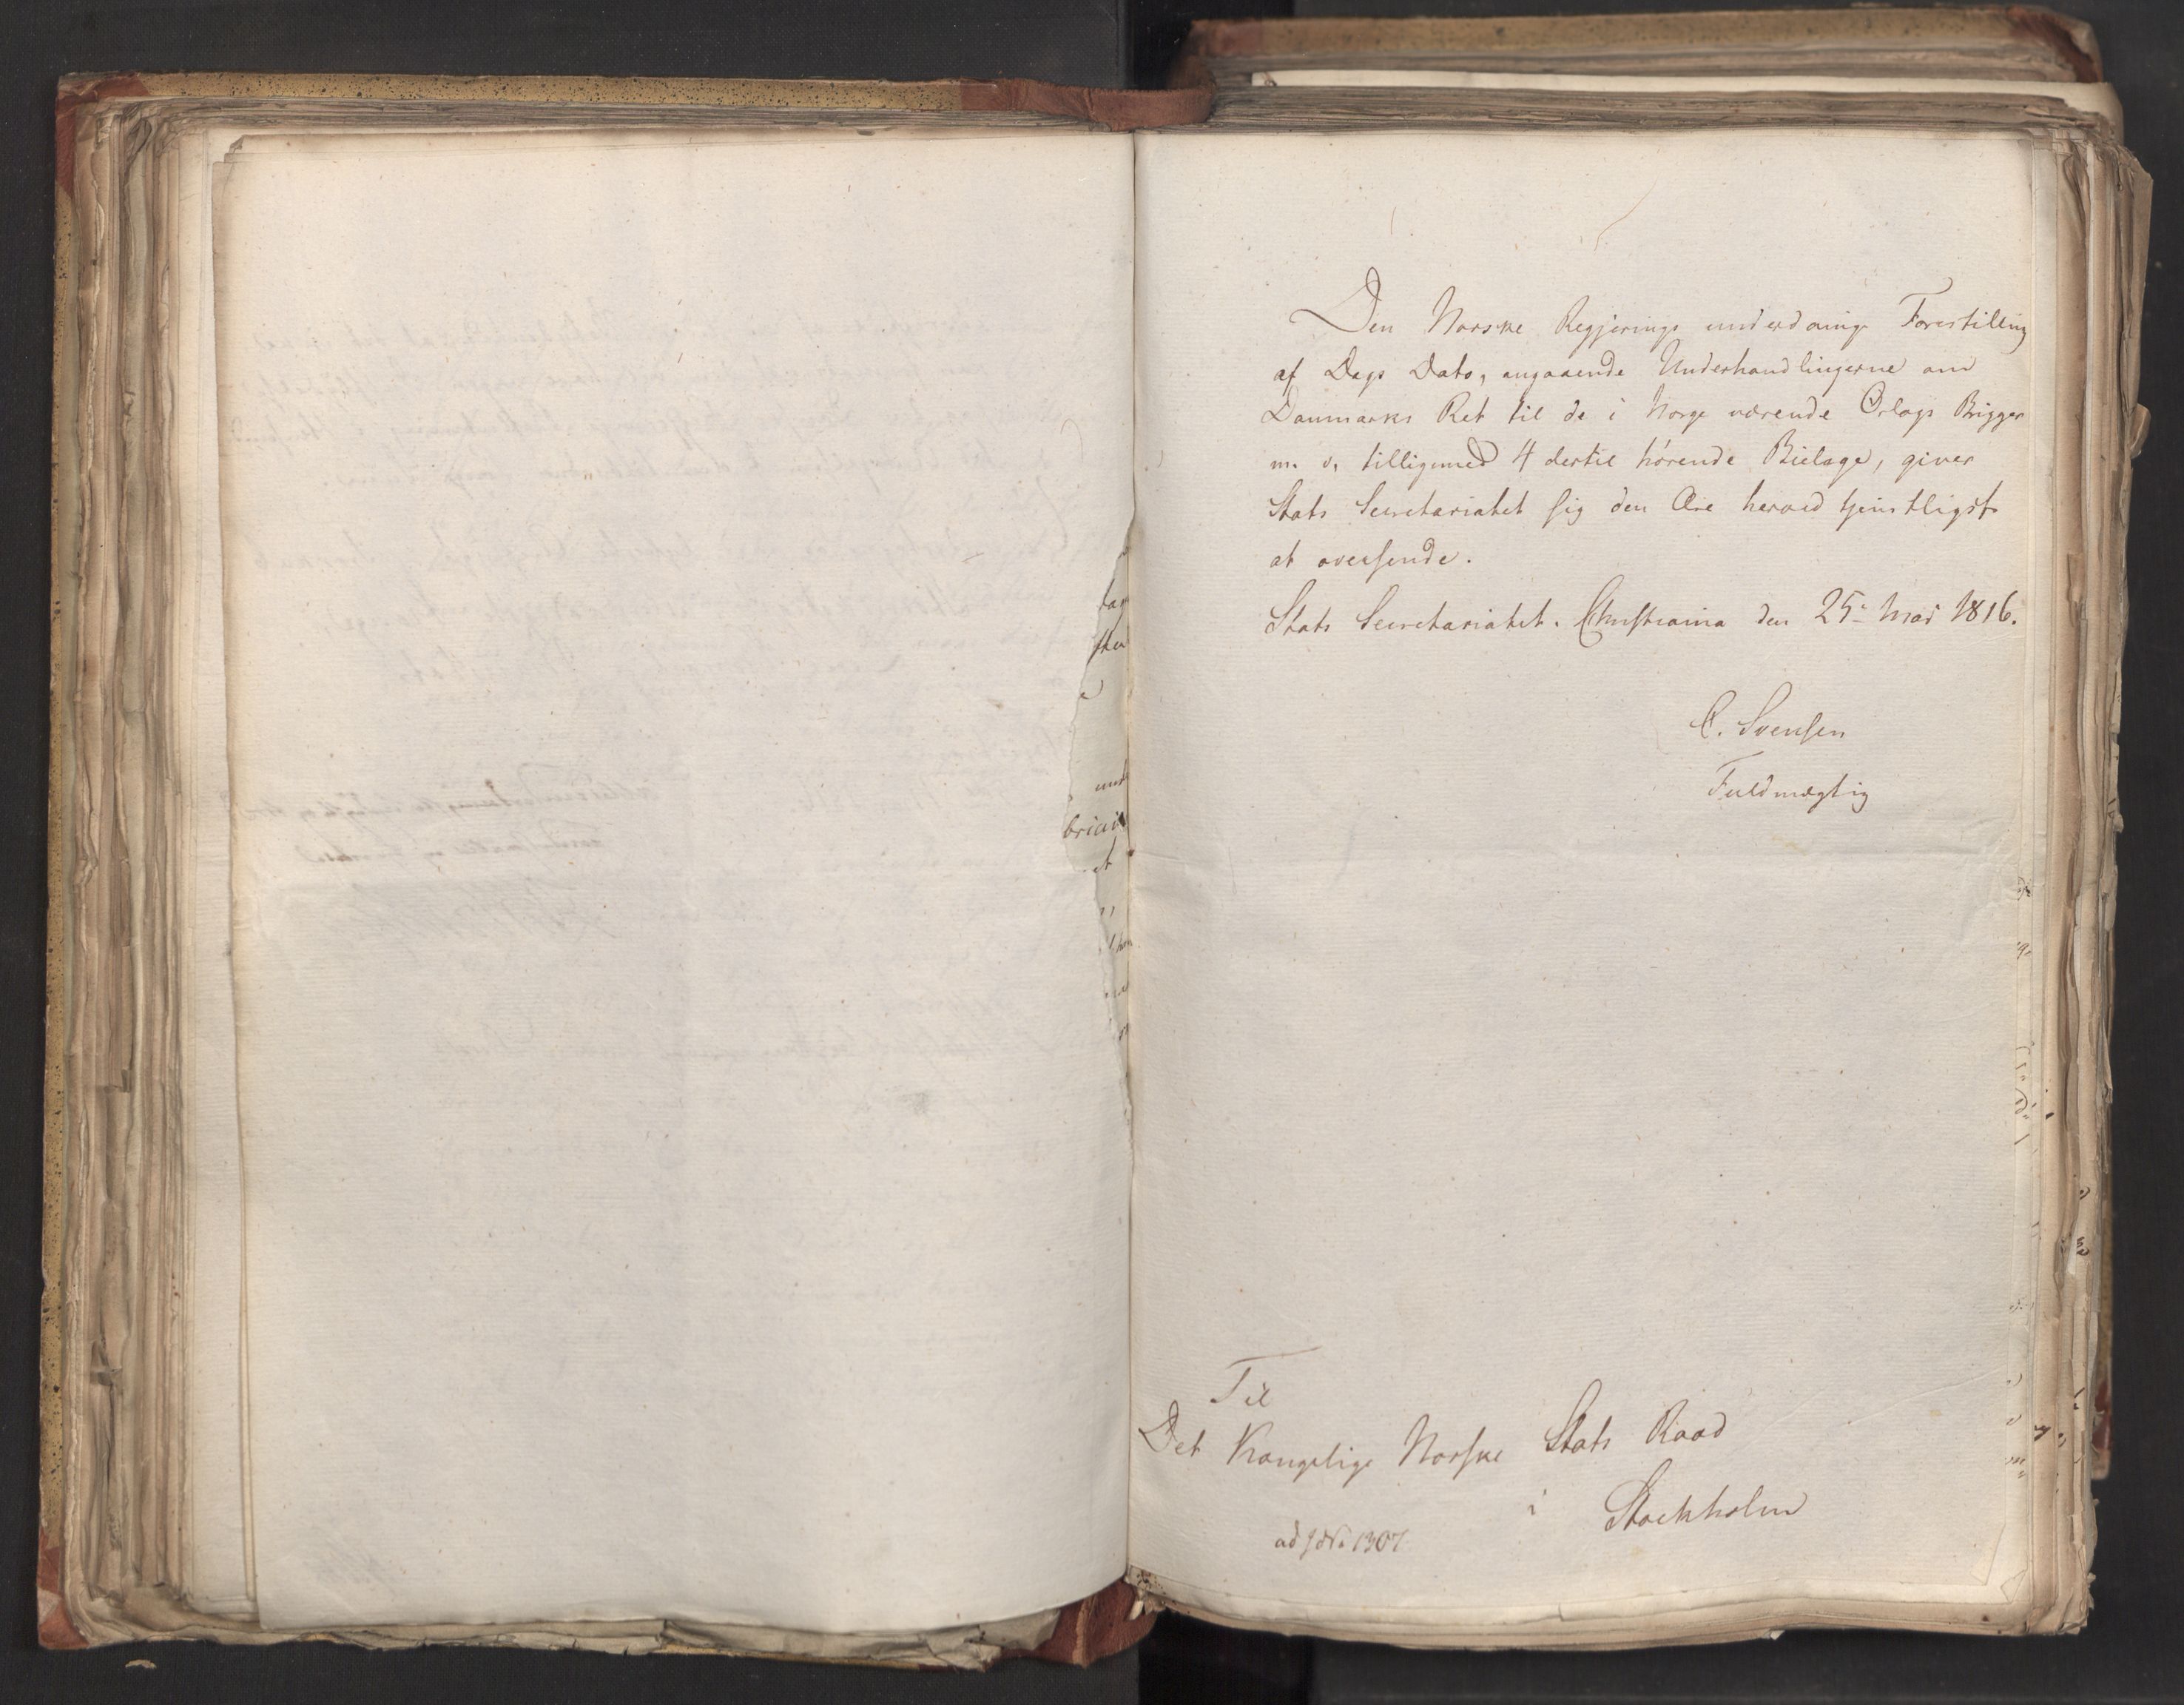 Den Norske Regjerings underdanige Forestilling
af Dags Dato, angaaende Underhandlingerne om
Danmarks Ret til de i Norge værende Orlogs Brigger
m. v. tilligemed 4 dertil hørende Bielage, giver
Stats Secretariatet sig den Ære herved tjenstligst
at oversende.
Stats Secretariatet. Christiania den 25de Mai 1816.
C. Svensen
Fuldmægtig
Til
Det Kongelige Norske Stats Raad
i Stockholm
1307